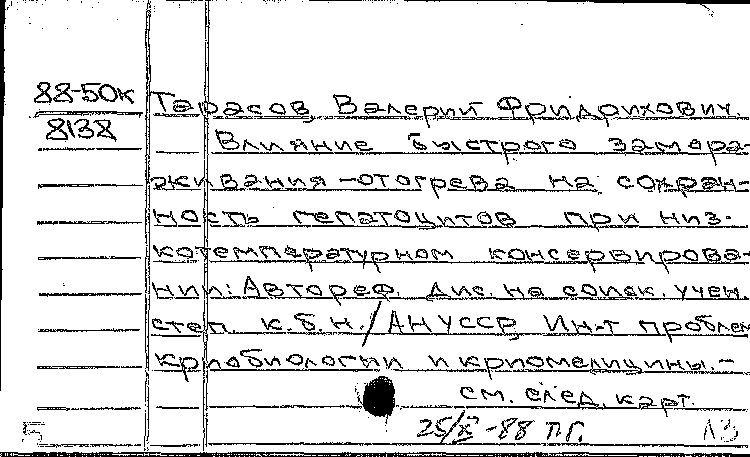 88-50к
8138
Тарасов, Валерий Фридрихович.
Влияние быстрого замора-
живания-отогрева на сохран-
ность гепатоцитов при низ-
котемпературном консервирова-
нии: Автореф. дис. на соиск. учен.
степ. к.б.н./АН УССР, Ин-т проблем
криобиологии и криомедицины.-
см. след. карт.
25/X-88 П.Г.